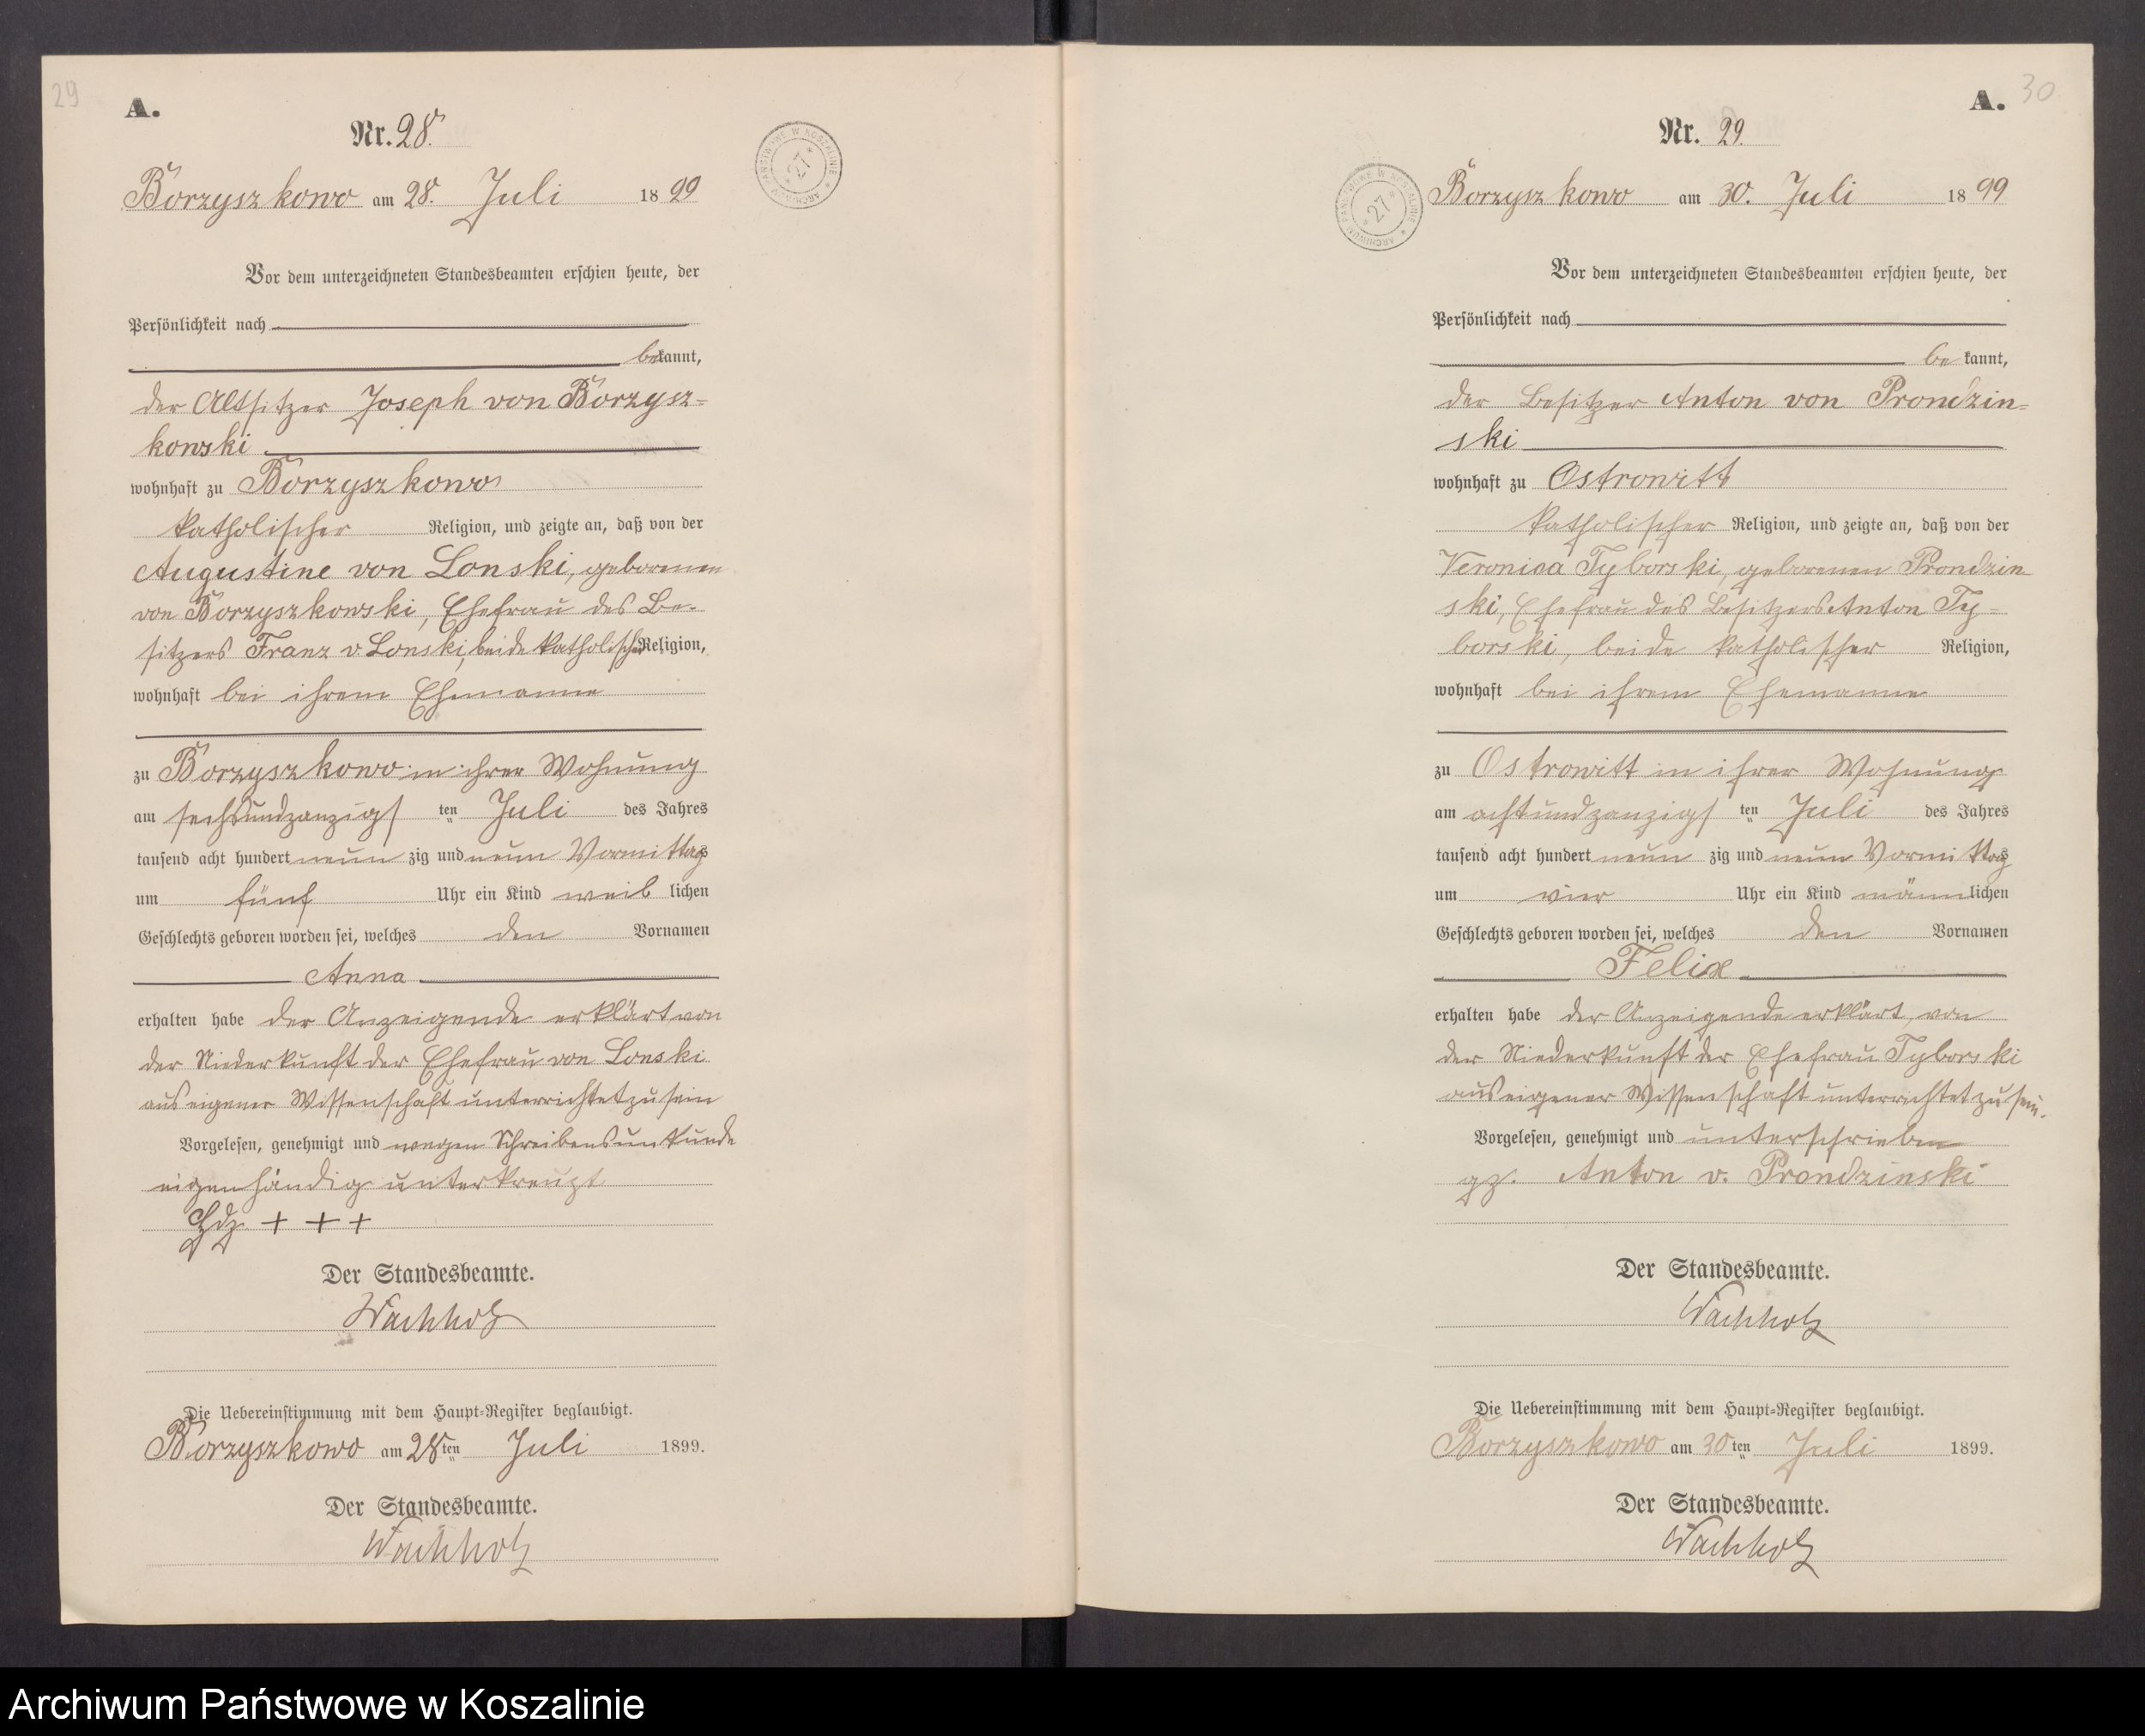 29
A.
Nr. 28.
ARCHIWUM PAŃSTWOWE W KOSZALINIE * 27 *
Borzyszkowo am 28. Juli 1899
Vor dem unterzeichneten Standesbeamten erschien heute, der
Persönlichkeit nach
bekannt,
der Altsitzer Joseph von Borzysz-
kowski
wohnhaft zu Borzyszkowo
katholischer Religion, und zeigte an, daß von der
Augustine von Lonski, geborenen
von Borzyszkowski, Ehefrau des Be-
sitzers Franz v Lonski, beide katholischer Religion,
wohnhaft bei ihrem Ehemanne
zu Borzyszkowo in ihrer Wohnung
am sechsundzanzigs ten Juli des Jahres
tausend acht hundert neun zig und neun Vormittags
um fünf Uhr ein Kind weib lichen
Geschlechts geboren worden sei, welches den Vornamen
Anna
erhalten habe der Anzeigende erklärt von
der Niederkunft der Ehefrau von Lonski
aus eigener Wissenschaft unterrichtet zu sein
Vorgelesen, genehmigt und wegen Schreibensunkunde
eigenhändig unterkreuzt
Hdz. + + +
Der Standesbeamte.
Wachholz
Die Uebereinstimmung mit dem Haupt-Register beglaubigt.
Borzyszkowo am 28ten Juli 1899.
Der Standesbeamte.
Wachholz
30
A.
Nr. 29.
ARCHIWUM PAŃSTWOWE W KOSZALINIE * 27 *
Borzyszkowo am 30. Juli 1899
Vor dem unterzeichneten Standesbeamten erschien heute, der
Persönlichkeit nach
bekannt,
der Besitzer Anton von Prondzin-
ski
wohnhaft zu Ostrowitt
katholischer Religion, und zeigte an, daß von der
Veronica Tyborski, geborenen Prondzin
ski, Ehefrau des Besitzers Anton Ty-
borski, beide katholischer Religion,
wohnhaft bei ihrem Ehemanne
zu Ostrowitt in ihrer Wohnung
am achtundzanzigs ten Juli des Jahres
tausend acht hundert neun zig und neun Vormittags
um vier Uhr ein Kind männlichen
Geschlechts geboren worden sei, welches den Vornamen
Felix
erhalten habe der Anzeigende erklärt, von
der Niederkunft der Ehefrau Tyborski
aus eigener Wissenschaft unterrichtet zu sein.
Vorgelesen, genehmigt und unterschrieben
gz. Anton v. Prondzinski
Der Standesbeamte.
Wachholz
Die Uebereinstimmung mit dem Haupt-Register beglaubigt.
Borzyszkowo am 30ten Juli 1899.
Der Standesbeamte.
Wachholz
Archiwum Państwowe w Koszalinie